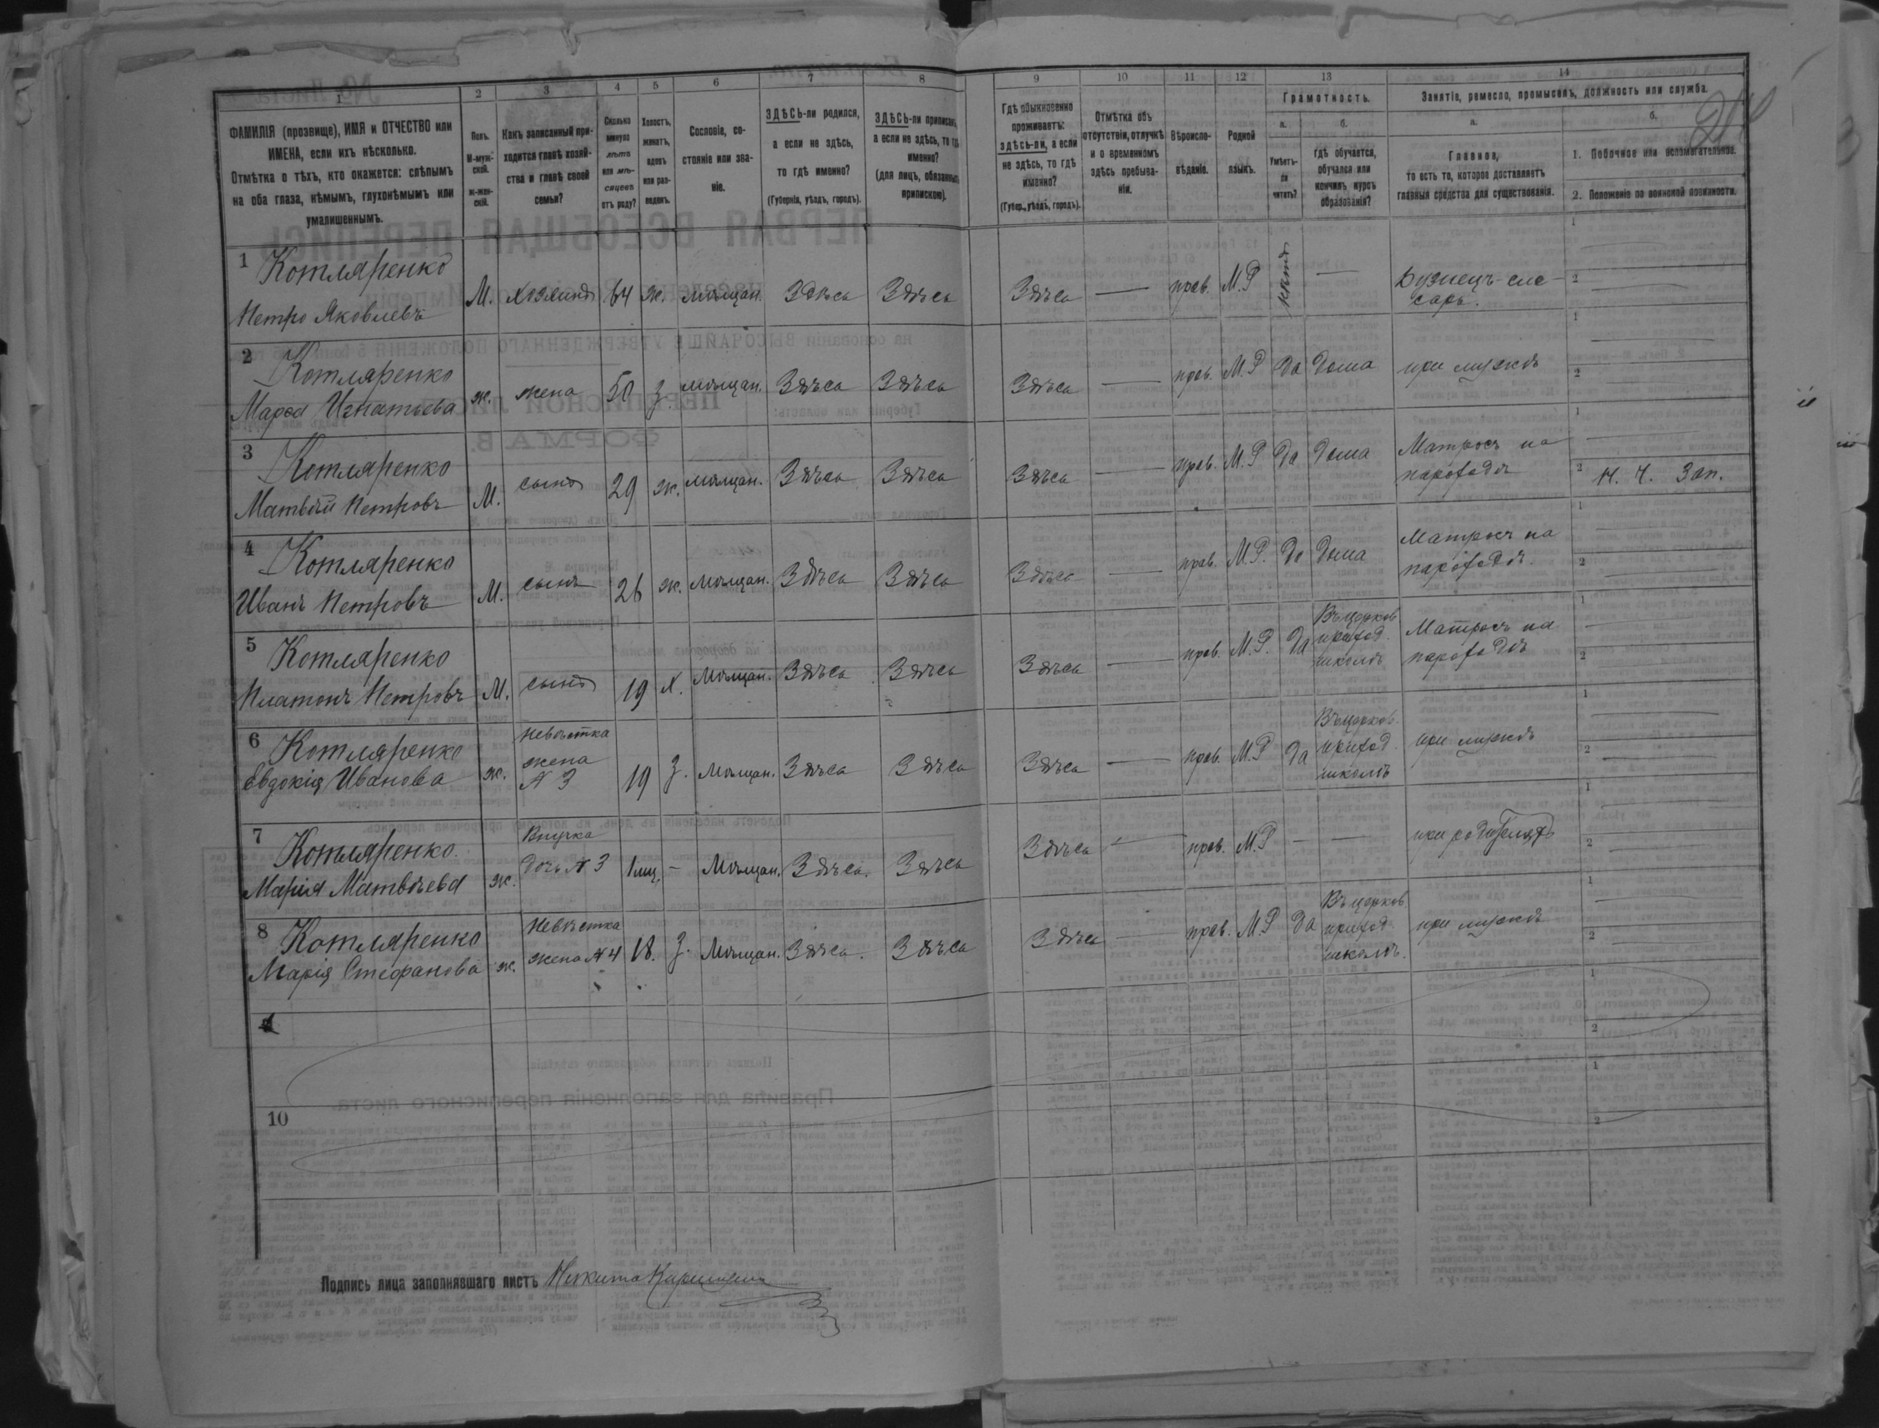 1 2 3 4 5 6 7 8 9 10 11 12 13 14
ФАМИЛІЯ (прозвище), ИМЯ и ОТЧЕСТВО или
ИМЕНА, если ихъ нѣсколько.
Отмѣтка о тѣхъ, кто окажется: слѣпымъ
на оба глаза, нѣмымъ, глухонѣмымъ или
умалишеннымъ.
Полъ.
М-муж-
ской.
ж-жен-
скій.
Какъ записанный при-
ходится главѣ хозяй-
ства и главѣ своей
семьи?
Сколько
минуло
лѣтъ
или мѣ-
сяцевъ
отъ роду?
Холостъ,
женатъ,
вдовъ
или раз-
веденъ.
Сословіе, со-
стояніе или зва-
ніе.
ЗДѢСЬ-ли родился,
а если не здѣсь,
то гдѣ именно?
(Губернія, уѣздъ, городъ).
ЗДѢСЬ-ли приписанъ,
а если не здѣсь, то гдѣ
именно?
(для лицъ, обязанныхъ
припискою).
Гдѣ обыкновенно
проживаетъ:
здѣсь-ли, а если
не здѣсь, то гдѣ
именно?
(Губер., уѣздъ, городъ).
Отмѣтка объ
отсутствіи, отлучкѣ
и о временномъ
здѣсь пребыва-
ніи.
Вѣроиспо-
вѣданіе.
Родной
языкъ.
Грамотность.
а.
Умѣетъ-
ли
читать?
б.
гдѣ обучается,
обучался или
кончилъ курсъ
образованія?
Занятіе, ремесло, промыселъ, должность или служба.
а.
Главное,
то есть то, которое доставляетъ
главныя средства для существованія.
б.
1. Побочное или вспомогательное.
2. Положеніе по воинской повинности.
1 Котляренко
Петро Яковлевъ М. хозяинъ 64 ж. мѣщан. Здѣсь Здѣсь Здѣсь — прав. М.Р нѣтъ — Кузнецъ-сле-
сарь.
1
2
2 Котляренко
Марѳа Игнатьева ж. жена 50 З. мѣщан. Здѣсь Здѣсь Здѣсь — прав. М.Р Да дома при мужѣ
1
2
3 Котляренко
Матвѣй Петровъ М. сынъ 29 ж. мѣщан. Здѣсь Здѣсь Здѣсь — прав. М.Р Да дома Матросъ на
пароходѣ
1
2 Н. Ч. Зап.
4 Котляренко
Иванъ Петровъ М. сынъ 26 ж. мѣщан. Здѣсь Здѣсь Здѣсь — прав. М.Р. Да дома Матросъ на
пароходѣ.
1
2
5 Котляренко
Платонъ Петровъ М. сынъ 19 Х. мѣщан. Здѣсь Здѣсь Здѣсь — прав. М.Р. Да Въ церков
приход.
школѣ
Матросъ на
пароходѣ
1
2
6 Котляренко
Евдокія Иванова ж. Невѣстка
жена
№ 3
19 З. Мѣщан. Здѣсь Здѣсь Здѣсь — прав. М.Р Да Въ церков.
приход.
школѣ
при мужѣ
1
2
7 Котляренко.
Марія Матвѣева ж. Внучка
дочь № 3 1 мц. — Мѣщан. Здѣсь. Здѣсь Здѣсь — прав. М.Р — — при родителяхъ
1
2
8 Котляренко
Марія Стефанова ж. Невѣстка
жена № 4 18. З. Мѣщан. Здѣсь. Здѣсь Здѣсь — прав. М.Р Да Въ церков
приход
школѣ.
при мужѣ
1
2
1
2
10
1
2
Подпись лица заполнявшаго листъ Никита